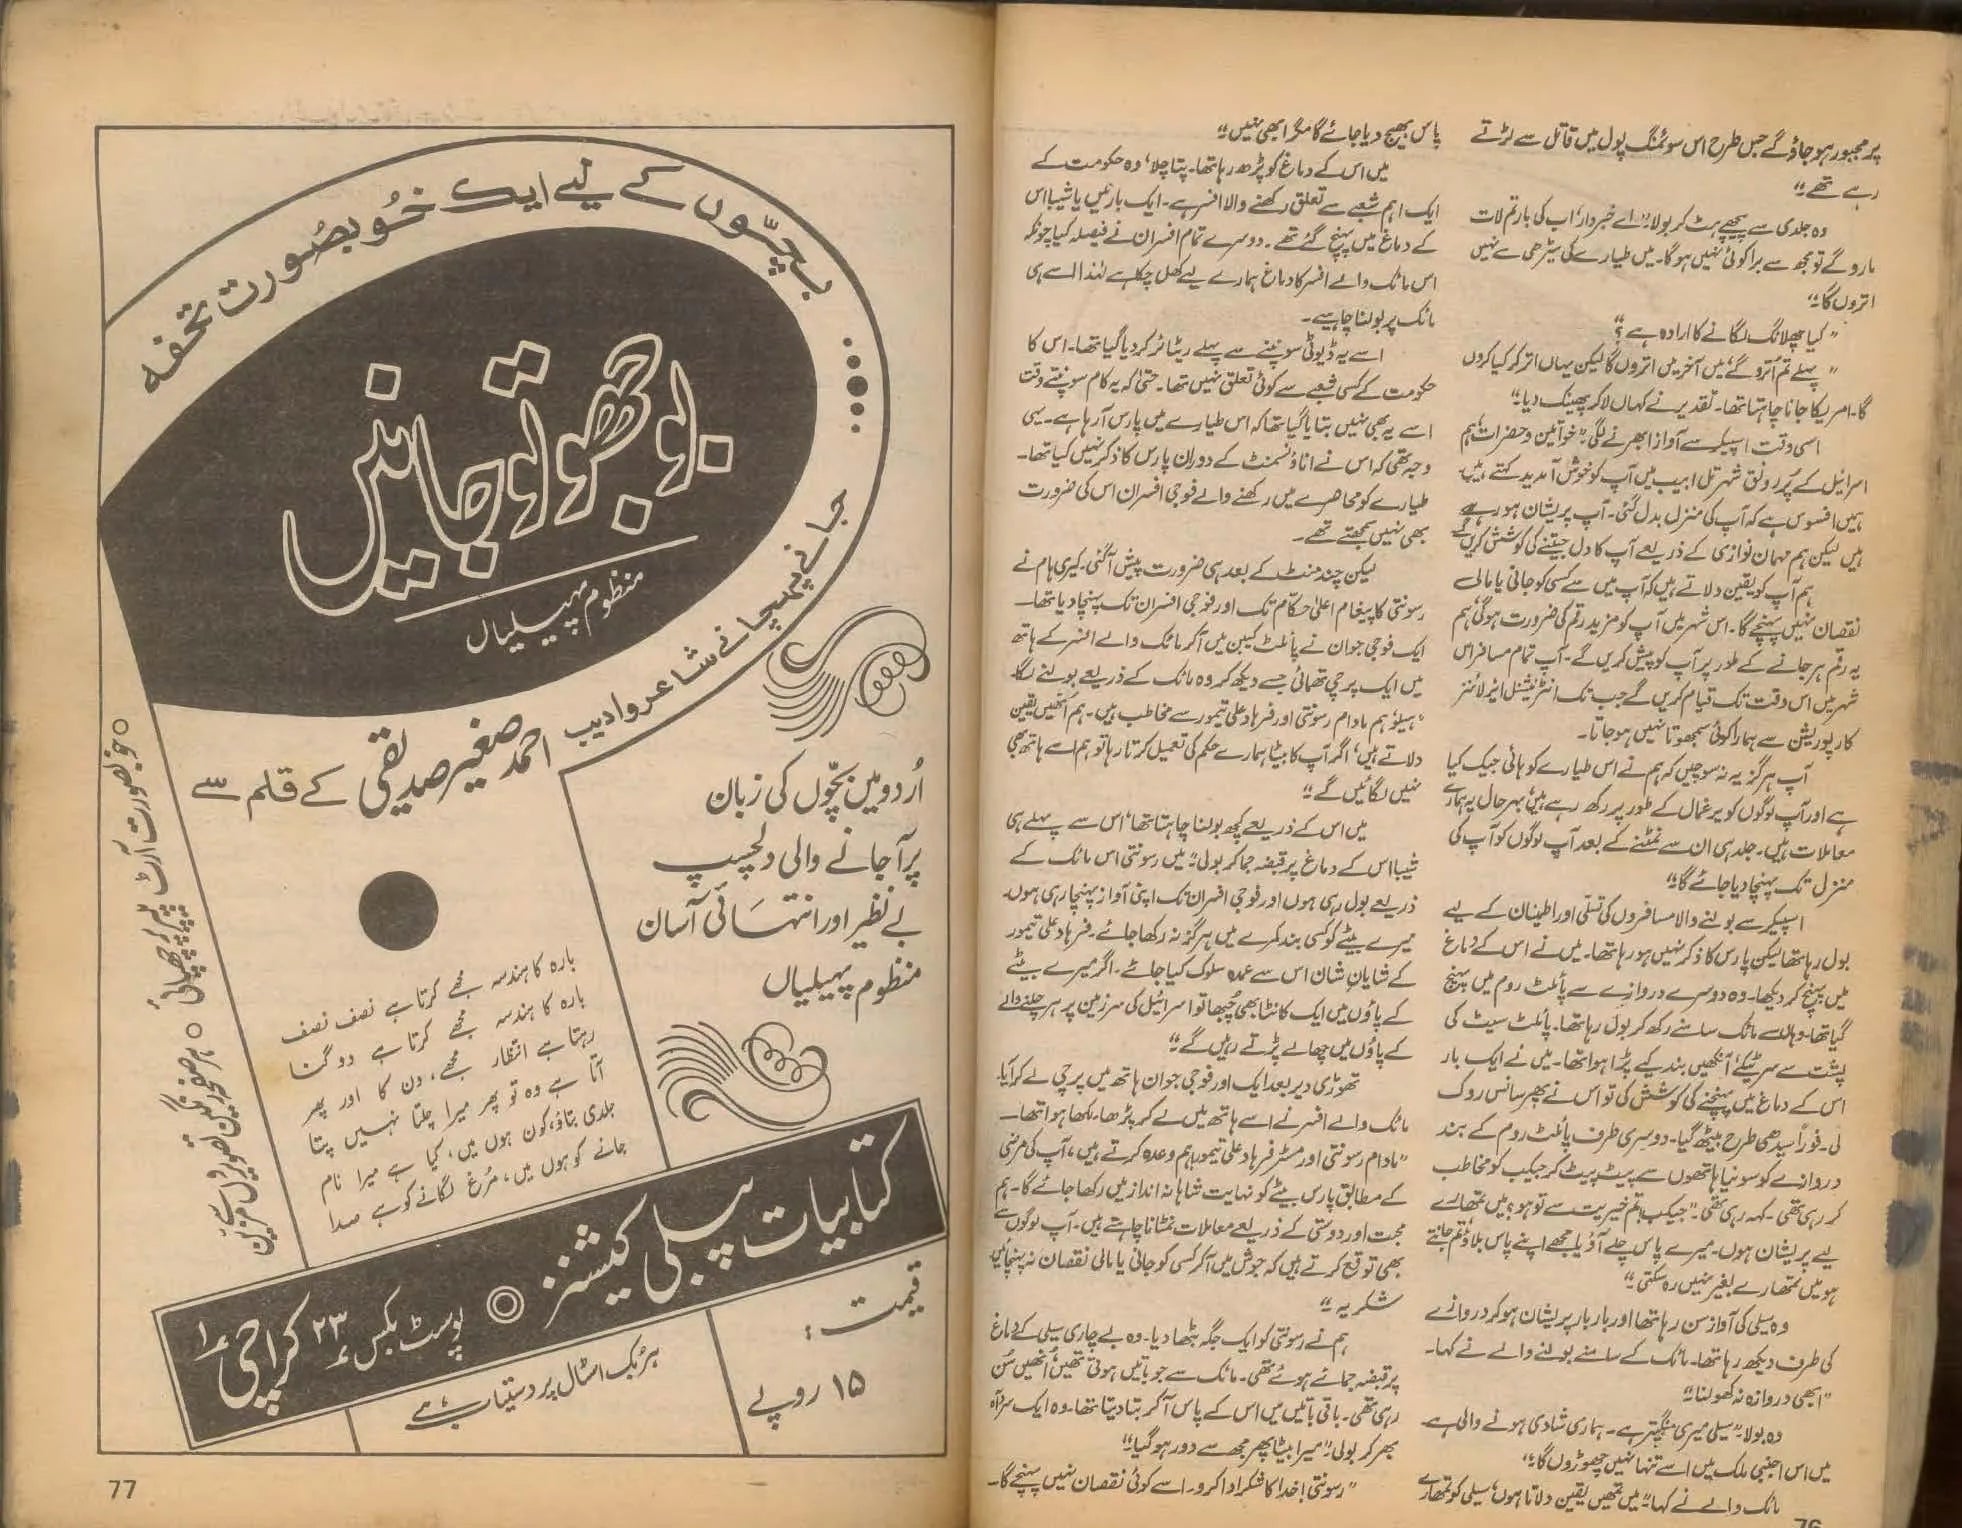 پر مجبور ہو جاؤ گے جس طرح اس سوئمنگ پول میں قاتل سے لڑتے
رہے تھے۔"
وہ جلدی سے پیچھے ہٹ کر بولا۔"اے خبردار، اب کی بار تم لات
مارو گے تو مجھ سے برا کوئی نہیں ہوگا۔ میں طیارے کی سیڑھی سے نہیں
اتروں گا۔"
"کیا چھلانگ لگانے کا ارادہ ہے؟"
"پہلے تم اُترو گے، میں آخر میں اتروں گا لیکن یہاں اتر کر کیا کروں
گا۔ امریکا جانا چاہتا تھا۔ تقدیر نے کہاں لا کر پھینک دیا۔"
اسی وقت اسپیکر سے آواز ابھرنے لگی۔"خواتین و حضرات، ہم
اسرائیل کے پُر رونق شہر تل ابیب میں آپ کو خوش آمدید کہتے ہیں۔
ہمیں افسوس ہے کہ آپ کی منزل بدل گئی۔ آپ پریشان ہو رہے
ہیں لیکن ہم مہمان نوازی کے ذریعے آپ کا دل جیتنے کی کوشش کریں گے۔
ہم آپ کو یقین دلاتے ہیں کہ آپ میں سے کسی کو جانی یا مالی
نقصان نہیں پہنچے گا۔ اس شہر میں آپ کو مزید رقم کی ضرورت ہوگی، ہم
یہ رقم ہرجانے کے طور پر آپ کو پیش کریں گے۔ آپ تمام مسافر اس
شہر میں اس وقت تک قیام کریں گے جب تک انٹرنیشنل ایئر لائنز
کارپوریشن سے ہمارا کوئی سمجھوتا نہیں ہو جاتا۔
آپ ہرگز یہ نہ سوچیں کہ ہم نے اس طیارے کو ہائی جیک کیا
ہے اور آپ لوگوں کو یرغمال کے طور پر رکھ رہے ہیں، بہرحال یہ ہمارے
معاملات ہیں۔ جلد ہی ان سے نمٹنے کے بعد آپ لوگوں کو آپ کی
منزل تک پہنچا دیا جائے گا۔"
اسپیکر سے بولنے والا مسافروں کی تسلی اور اطمینان کے لیے
بول رہا تھا لیکن پارس کا ذکر نہیں ہو رہا تھا۔ میں نے اس کے دماغ
میں پہنچ کر دیکھا۔ وہ دوسرے دروازے سے پائلٹ روم میں پہنچ
گیا تھا۔ وہاں سے مائک سامنے رکھ کر بول رہا تھا۔ پائلٹ سیٹ کی
پشت سے سر ٹیکے، آنکھیں بند کیے پڑا ہوا تھا۔ میں نے ایک بار
اس کے دماغ میں پہنچنے کی کوشش کی تو اس نے پھر سانس روک
لی۔ فوراً سیدھی طرح بیٹھ گیا۔ دوسری طرف پائلٹ روم کے بند
دروازے کو سونیا ہاتھوں سے پیٹ پیٹ کر جیکب کو مخاطب
کر رہی تھی۔ کہہ رہی تھی۔"جیکب! تم خیریت سے تو ہو؟ میں تمھارے
لیے پریشان ہوں۔ میرے پاس چلے آؤ یا مجھے اپنے پاس بلاؤ، تم جانتے
ہو میں تمھارے بغیر نہیں رہ سکتی۔"
وہ سیلی کی آواز سن رہا تھا اور بار بار پریشان ہو کر دروازے
کی طرف دیکھ رہا تھا۔ مائک کے سامنے بولنے والے نے کہا۔
"ابھی دروازہ نہ کھولنا۔"
وہ بولا۔"سیلی میری منگیتر ہے۔ ہماری شادی ہونے والی ہے۔
میں اس اجنبی ملک میں اسے تنہا نہیں چھوڑوں گا۔"
مائک والے نے کہا۔"میں تمھیں یقین دلاتا ہوں، سیلی کو تمھارے
76
پاس بھیج دیا جائے گا مگر ابھی نہیں۔"
میں اس کے دماغ کو پڑھ رہا تھا۔ پتا چلا، وہ حکومت کے
ایک اہم شعبے سے تعلق رکھنے والا افسر ہے۔ ایک بار میں یا شیبا اس
کے دماغ میں پہنچ گئے تھے۔ دوسرے تمام افسران نے فیصلہ کیا چونکہ
اس مائک والے افسر کا دماغ ہمارے لیے کھل چکا ہے لہٰذا اسے ہی
مائک پر بولنا چاہیے۔
اسے یہ ڈیوٹی سونپنے سے پہلے ریٹائر کر دیا گیا تھا۔ اس کا
حکومت کے کسی شعبے سے کوئی تعلق نہیں تھا۔ حتیٰ کہ یہ کام سونپتے وقت
اسے یہ بھی نہیں بتایا گیا تھا کہ اس طیارے میں پارس آ رہا ہے۔ یہی
وجہ تھی کہ اس نے اناؤنسمنٹ کے دوران پارس کا ذکر نہیں کیا تھا۔
طیارے کو محاصرے میں رکھنے والے فوجی افسران اس کی ضرورت
بھی نہیں سمجھتے تھے۔
لیکن چند منٹ کے بعد ہی ضرورت پیش آگئی۔ کیری ہام نے
رسونتی کا پیغام اعلیٰ حکام تک اور فوجی افسران تک پہنچا دیا تھا۔
ایک فوجی جوان نے پائلٹ کیبن میں آکر مائک والے افسر کے ہاتھ
میں ایک پرچی تھمائی جسے دیکھ کر وہ مائک کے ذریعے بولنے لگا۔
"ہیلو، ہم مادام رسونتی اور فرہاد علی تیمور سے مخاطب ہیں۔ ہم اُنھیں یقین
دلاتے ہیں، اگر آپ کا بیٹا ہمارے حکم کی تعمیل کرتا رہا تو ہم اسے ہاتھ بھی
نہیں لگائیں گے۔"
میں اس کے ذریعے کچھ بولنا چاہتا تھا، اس سے پہلے ہی
شیبا اس کے دماغ پر قبضہ جما کر بولی۔"میں رسونتی اس مائک کے
ذریعے بول رہی ہوں اور فوجی افسران تک اپنی آواز پہنچا رہی ہوں۔
میرے بیٹے کو کسی بند کمرے میں ہرگز نہ رکھا جائے۔ فرہاد علی تیمور
کے شایانِ شان اس سے عمدہ سلوک کیا جائے۔ اگر میرے بیٹے
کے پاؤں میں ایک کانٹا بھی چُبھا تو اسرائیل کی سرزمین پر ہر چلنے والے
کے پاؤں میں چھالے پڑتے رہیں گے۔"
تھوڑی دیر بعد ایک اور فوجی جوان ہاتھ میں پرچی لے کر آیا۔
مائک والے افسر نے اسے ہاتھ میں لے کر پڑھا۔ لکھا ہوا تھا۔
"مادام رسونتی اور مسٹر فرہاد علی تیمور! ہم وعدہ کرتے ہیں، آپ کی مرضی
کے مطابق پارس بیٹے کو نہایت شاہانہ انداز میں رکھا جائے گا۔ ہم
محبت اور دوستی کے ذریعے معاملات نمٹانا چاہتے ہیں۔ آپ لوگوں سے
بھی توقع کرتے ہیں کہ جوش میں آکر کسی کو جانی یا مالی نقصان نہ پہنچائیں
شکریہ۔"
ہم نے رسونتی کو ایک جگہ بٹھا دیا۔ وہ بے چاری سیلی کے دماغ
پر قبضہ جمائے ہوئے تھی۔ مائک سے جو باتیں ہوتی تھیں، اُنھیں سُن
رہی تھی۔ باقی باتیں میں اس کے پاس آکر بتا دیتا تھا۔ وہ ایک سرد آہ
بھر کر بولی۔"میرا بیٹا پھر مجھ سے دور ہو گیا۔"
"رسونتی! خدا کا شکر ادا کرو۔ اسے کوئی نقصان نہیں پہنچے گا۔
بچّوں کے لیے ایک خوبصورت تحفہ
بوجھو تو جانیں
منظوم پہیلیاں
جانے پہچانے شاعر و ادیب
احمد صغیر صدیقی کے قلم سے
اُردو میں بچّوں کی زبان
پر آجانے والی دلچسپ
بے نظیر اور انتہائی آسان
منظوم پہیلیاں
بارہ کا ہندسہ مجھے کرتا ہے نصف نصف
بارہ کا ہندسہ مجھے کرتا ہے دوگنا
رہتا ہے انتظار مجھے، دن کا اور پھر
آتا ہے وہ تو پھر میرا چلتا نہیں پتا
جلدی بتاؤ، کون ہوں میں، کیا ہے میرا نام
جانے کو ہوں میں، مُرغ لگانے کو ہے صدا
خوبصورت آرٹ پیپر پر چھپائی
ہر صفحہ رنگین تصویروں سے مزین
کتابیات پبلی کیشنز
پوسٹ بکس ۲۳ کراچی ۱
قیمت:
۱۵ روپے
ہر بک اسٹال پر دستیاب ہے
77